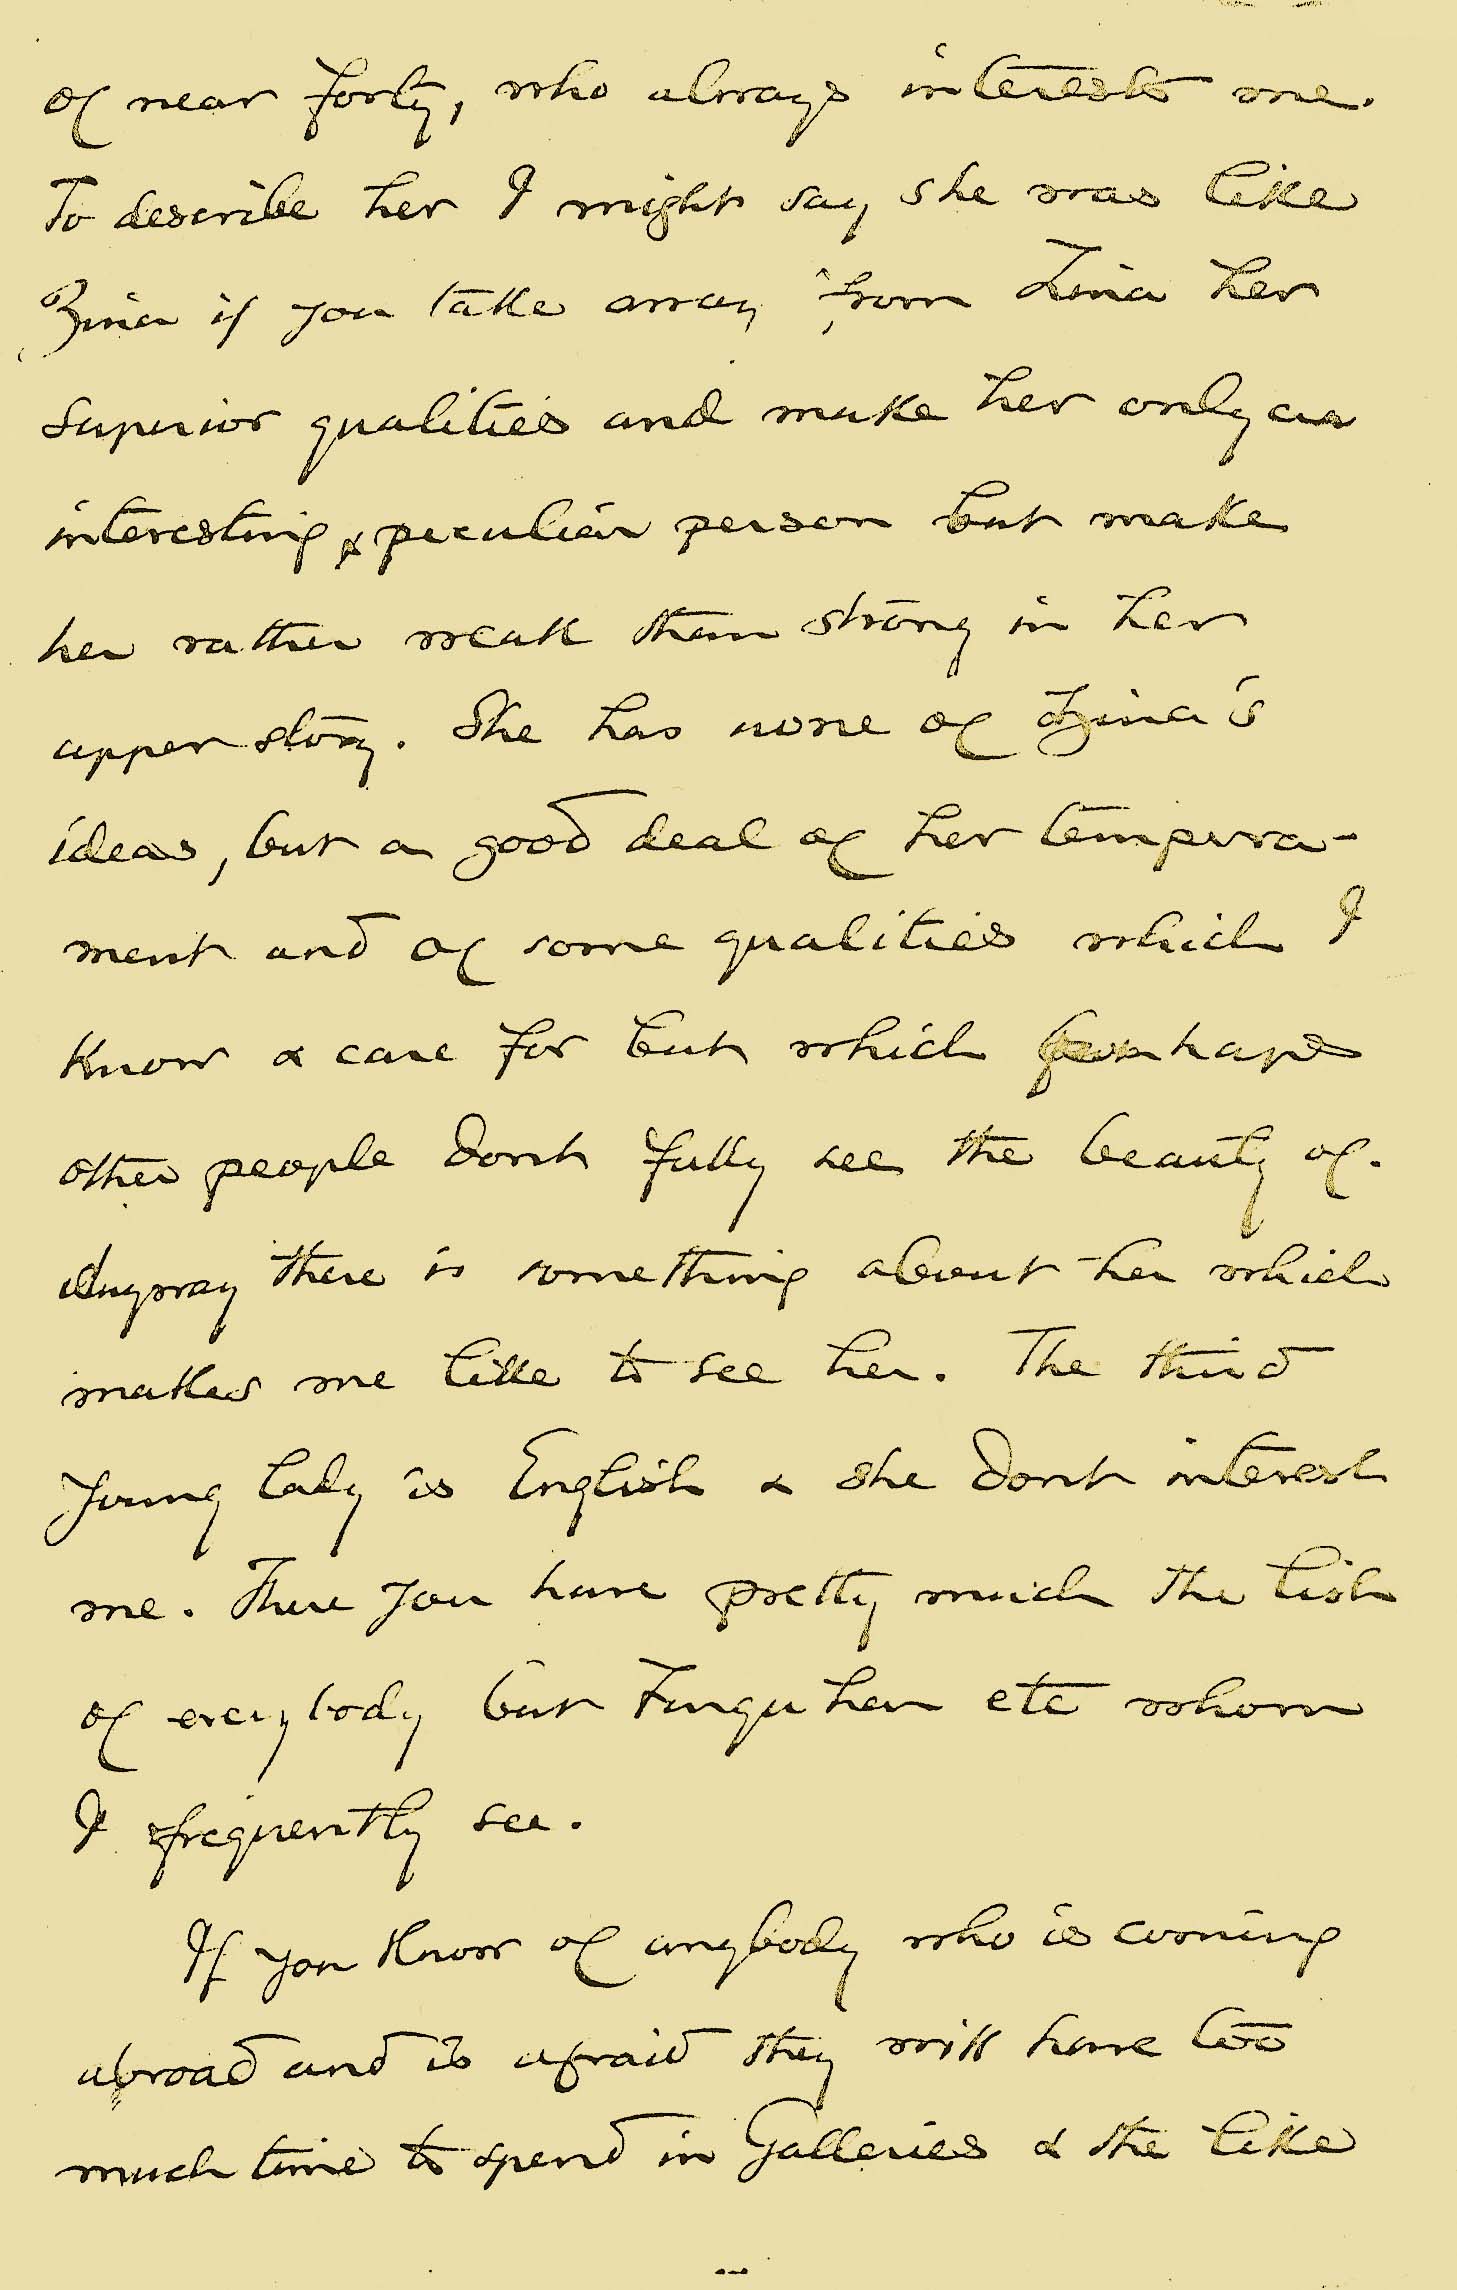 of near forty, who always interests me.
To describe her I might say she was like
Zina if you take away from Zina her
superior qualities and make her only an
interesting & peculiar person but make
her rather weak than strong in her
upper story. She has none of Zina's
ideas, but a good deal of her tempera-
ment and of some qualities which I
know & care for but which perhaps
other people dont fully see the beauty of.
Anyway there is something about her which
makes me like to see her. The third
young lady is English & she dont interest
me. There you have pretty much the list
of everybody but Farquhar etc whom
I frequently see.
If you know of anybody who is coming
abroad and is afraid they will have too
much time to spend in Galleries & the like